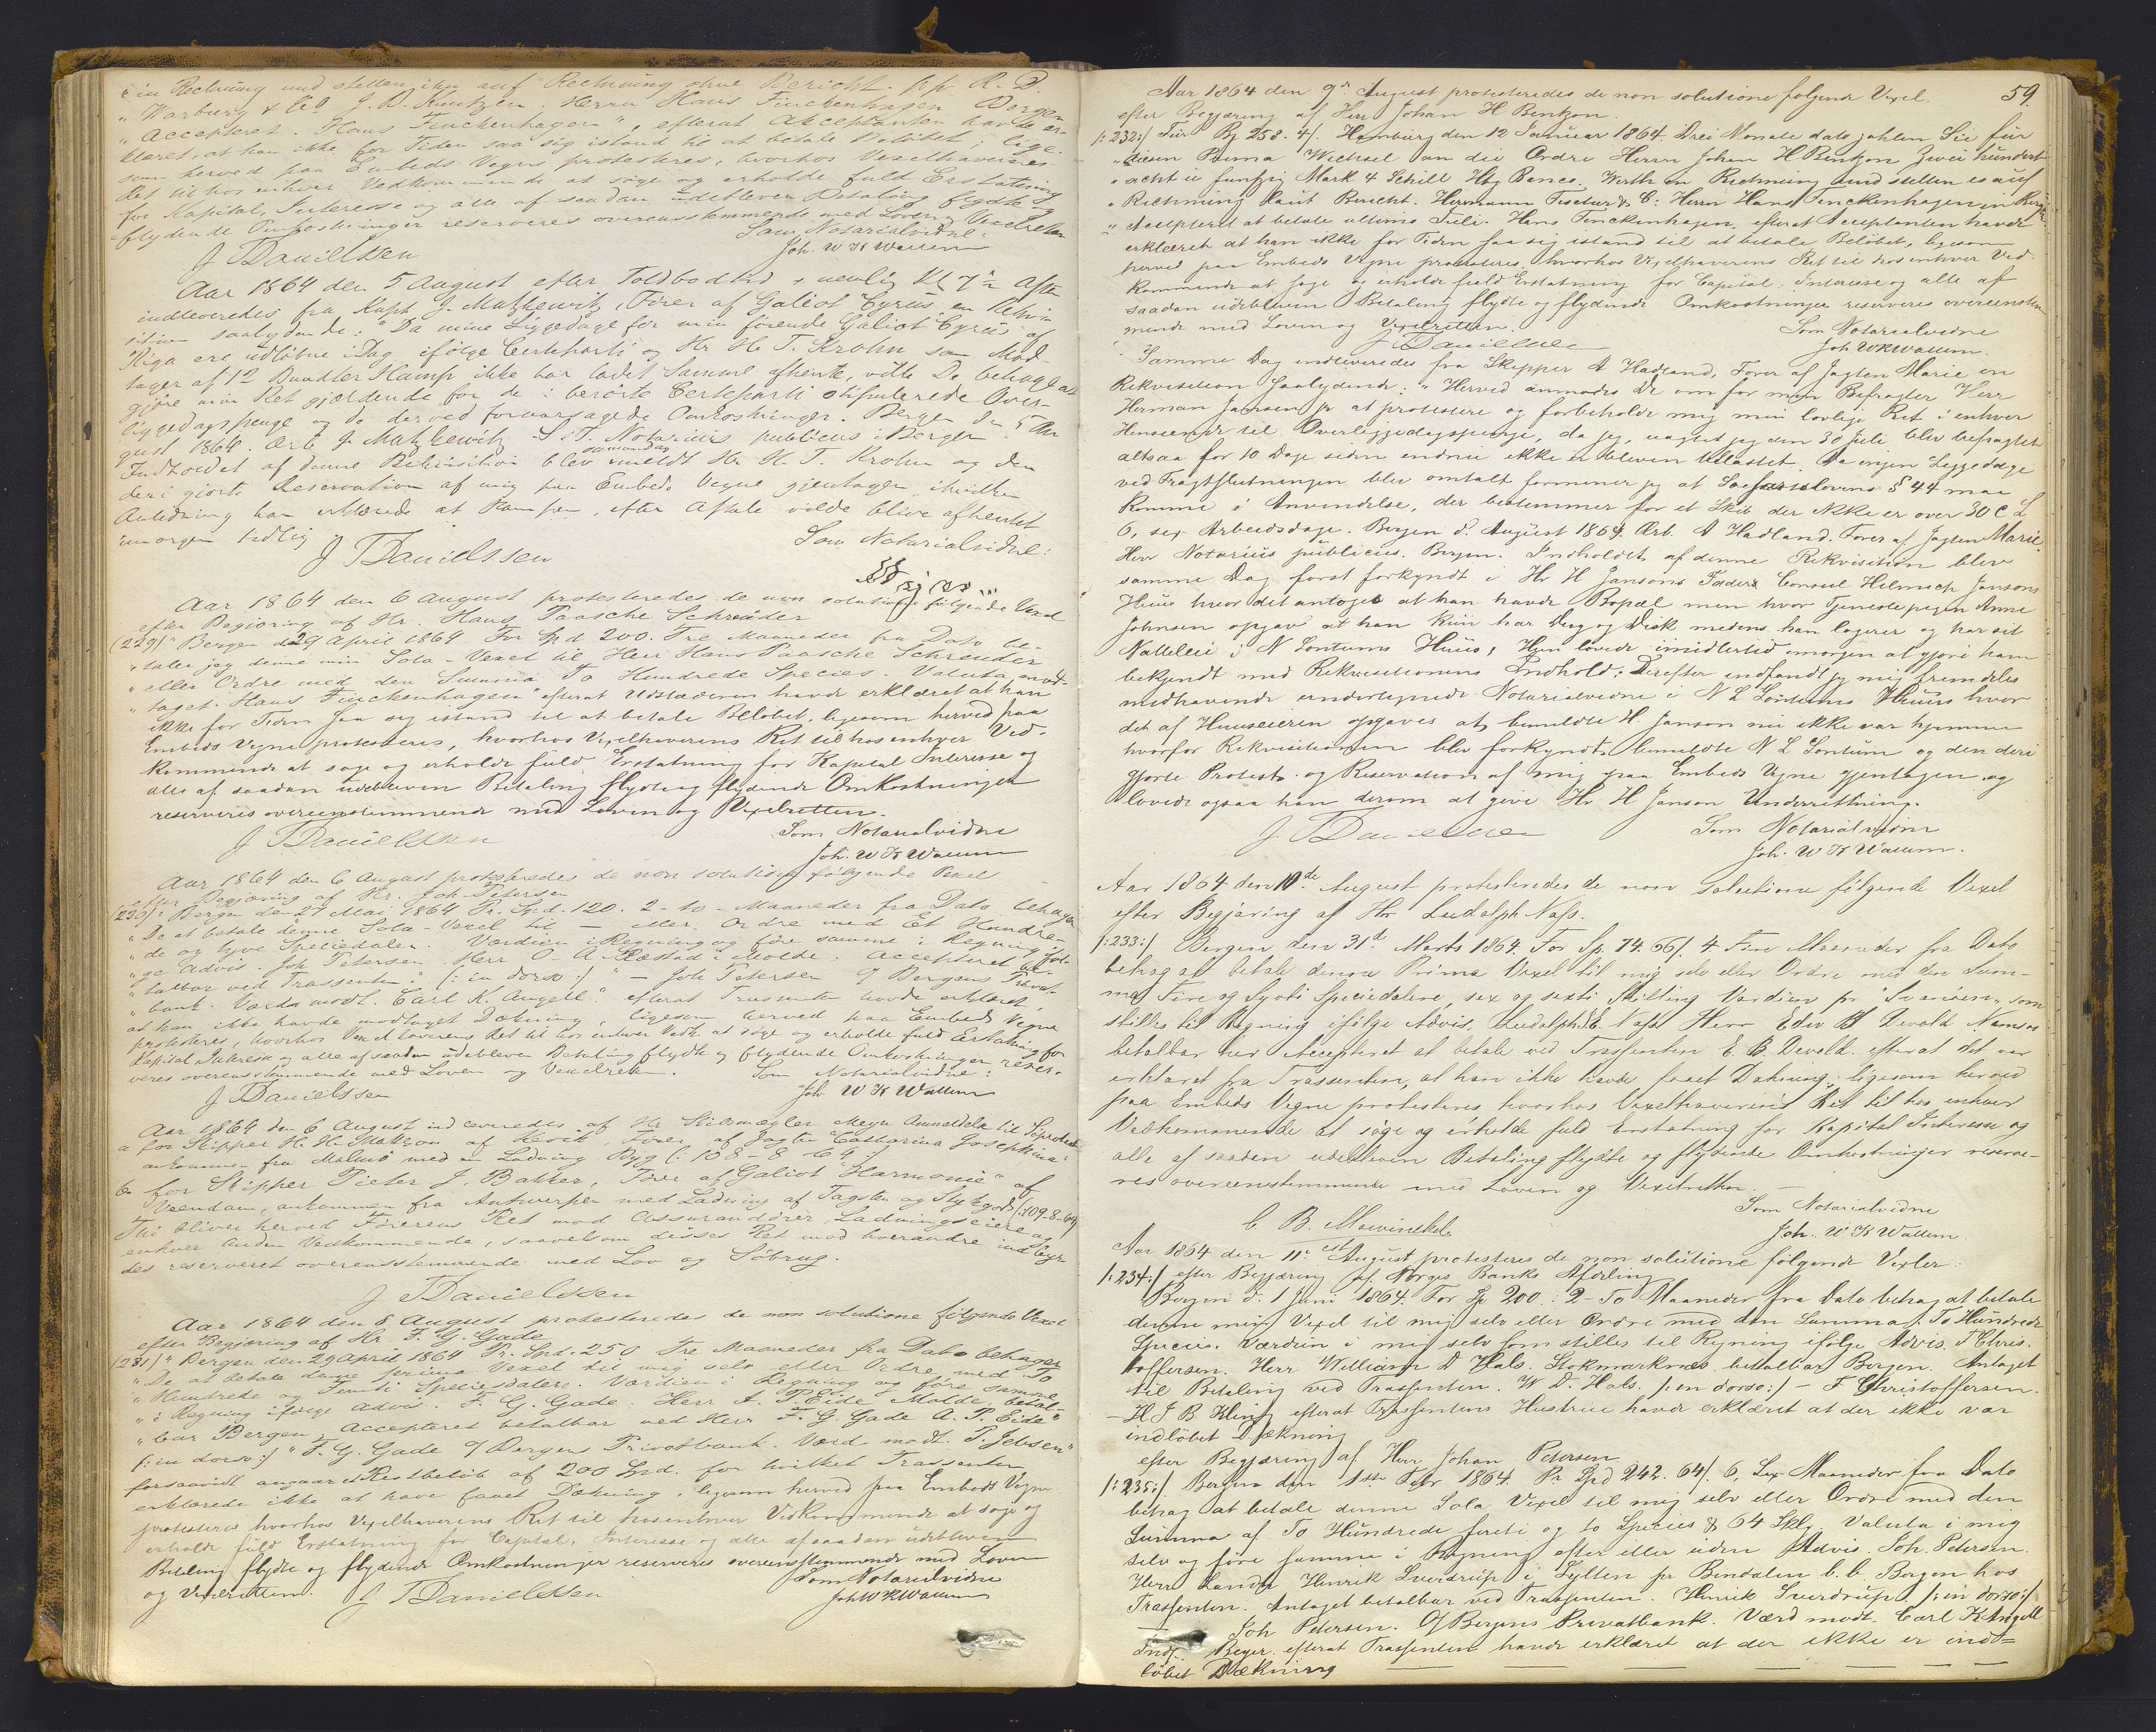 " in Rechnung und stellen ihn auf Rechnung ohne Bericht. pp. R. D.
" Warburg & Co J. D. Kuntzen. Herrn Hans Finckenhagen Bergen
" Accepteret. Hans Finckenhagen", efterat Akceptanten havde er-
klæret, at han ikke for Tiden saa sig istand til at betale Beløbet; lige-
som herved paa Embeds Vegne protesteres, hvorhos Vexelhaverens
Ret til hos enhver Vedkommende at søge og erholde fuld Erstatning
for Kapital, Interesse og alle af saadan udebleven Betaling flydte og
flydende Omkostninger reserveres overensstemmende med Loven og Vexelretten
Som Notarialvidne:
J Danielssen Joh. W K Wallum
Aar 1864 den 5 August efter Toldbodtid, nemlig Kl 7½ Aften
indleveredes fra Kapt. J. Matzkewitz, Fører af Galiot Cyrus, en Rekvi-
sition saalydende: "Da mine Liggedage for min førende Galiot Cyrus af
Riga ere udløbne i Dag ifølge Certeparti og Hr H. T. Krohn som Mod-
tager af 12 Bundter Hamp ikke har ladet Samme afhente, vilde De behage at
gjøre min Ret gjældende for de i berørte Certeparti stipulerede Over-
liggedagspenge og de derved foraarsagede Omkostninger. Bergen den 5 Au-
gust 1864. Ærb. J. Matzkewitz S. T. Notarius publicus i Bergen.
Indholdet af denne Rekvisition blev samme Dag meldt Hr H. T. Krohn og den
deri gjorte Reservation af mig paa Embeds Vegne gjentagen, i hvilken
Anledning han erklærede at Hampen, efter Aftale vilde blive afhentet
imorgen tidlig
J Danielssen Som Notarialvidne:
Aar 1864 den 6 August protesteredes de non solutione følgende Vexel
efter Begjæring af Hr. Hans Paasche Schreuder
(229)" Bergen d 29 April 1864 For Spd 200. Tre Maaneder fra Dato be-
" taler jeg denne min Sola-Vexel til Herr Hans Paasche Schreuder
" eller Ordre med den Summa To Hundrede Species. Valuta mod-
" taget. Hans Finckenhagen" efterat Udstæderen havde erklæret at han
ikke for Tiden saa sig istand til at betale Beløbet, ligesom herved paa
Embeds Vegne protesteres, hvorhos Vexelhaverens Ret til hos enhver Ved-
kommende at søge og erholde fuld Erstatning for Kapital Interesse og
alle af saadan udebleven Betaling flydte og flydende Omkostninger
reserveres overeenstemmende med Loven og Vexelretten.
J Danielssen Som Notarialvidne
Joh. W K Wallum
Aar 1864 den 6 August protesteredes de non solutione følgende Vexel
efter Begjæring af Hr. Joh. Petersen
(230)" Bergen den 27 Mai 1864 Pr. Spd. 120. 2 - to - Maaneder fra Dato behager
" De at betale denne Sola-Vexel til — eller Ordre med Et Hundre-
" de og tyve Speciedaler. Værdien i Regning og føre samme i Regning iføl-
" ge Advis. Joh Petersen Herr O- A- Kæstad i Molde. Accepteret be-
" talbar ved Trassenten." (: in dorso :) " — Joh Petersen O/ Bergens Privat-
" bank. Værdi modt. Carl K. Angell." efterat Trassenten havde erklæret,
at han ikke havde modtaget Dækning, ligesom herved paa Embeds Vegne
protesteres, hvorhos Vexelhaverens Ret til hos enhver Vedk. at søge og erholde fuld Erstatning for
Kapital Interesse og alle af saadan udebleven Betaling flydte og flydende Omkostninger reser-
veres overensstemmende med Loven og Vexelretten. Som Notarialvidne:
J Danielssen Joh. W K Wallum
Aar 1864 den 6 August indleveredes af Hr Skibsmægler Meyer Anmeldelse til Søprotest
a for Skipper H. H. Matzon af Kevik, Fører af Jagten "Catharina Josephina"
ankommen fra Malmø med en Ladning Byg (: 108-8-64 :)
b for Skipper Pieter J. Bakker, Fører af Galiot "Harmonie" af
Veendam, ankommen fra Antwerpen med Ladning af Tagsten og Stykgods (: 109-8-64
Thi bliver herved Førerens Ret mod Assurandører, Ladningseiere og
enhver Anden Vedkommende, saavelsom disses Ret mod hverandre indbyr-
des reserveret overensstemmende med Lov og Søbrug.
J Danielssen
Aar 1864 den 8 August protesteredes de non solutione følgende Vexel
efter Begjæring af Hr. F. G. Gade
(231)" Bergen den 29 April 1864 Pr. Spd. 250 Tre Maaneder fra Dato behager
" De at betale denne prima Vexel til mig selv eller Ordre med To
" Hundrede og Femti Speciedaler. Værdien i Regning og føre samme
" i Regning ifølge Advis. F. G. Gade. Herr A. P. Eide Molde, betal-
" bar Bergen. Accepteret betalbar ved Herr F. G. Gade A. P. Eide"
(: in dorso :) " F. G. Gade O/ Bergens Privatbank. Værdi modt. P. Jebsen"
forsaavidt angaar et Restbeløb af 200 Spd. for hvilket Trassenten
erklærede ikke at have faaet Dækning, ligesom herved paa Embeds Vegne
protesteres hvorhos Vexelhaverens Ret til hosenhver Vedkommende at søge og
erholde fuld Erstatning for Capital, Interesse og alle af saadan udebleven
Betaling flydte og flydende Omkostninger reserveres overeensstemmende med Loven
og Vexelretten. Som Notarialvidne
J Danielssen Joh W K Wallum
59.
Aar 1864 den 9de August protesteredes de non solutione følgende Vexel.
efter Begjæring af Herr Johan H Benkon.
/:232:/ Für Bf 258. 4/. Hamburg den 12 Januar 1864. Drei Monate dato zahlen Sie für
" diesen Prima Wechsel an die Ordre Herrn Johan H Benkon Zwei hundert
" acht u funfzig Mark 4 Schill Hbg Banco. Werth in Rechnung und stellen es auf
" Rechnung laut Bericht. Hermann Fischer & C: Herrn Hans Finckenhagen in Bergen
" Accepteret at betale ultimo Juli. Hans Finckenhagen, efterat Acceptanten havde
erklæret at han ikke for Tiden saa sig istand til at betale Beløbet, ligesom
herved paa Embeds Vegne protesteres, hvorhos Vexelhaverens Ret til hos enhver Ved-
kommende at søge og erholde fuld Erstatning for Capital, Interesse og alle af
saadan udebleven Betaling flydte og flydende Omkostninger reserveres overeenstem-
mende med Loven og Vexelretten. Som Notarialvidne
J Danielssen Joh W K Wallum.
Samme Dag indleveredes fra Skipper A Hadland, Fører af Jagten Marie en
Rekvisition saalydende: " Herved anmodes De om for min Befragter Herr
Herman Jansen jr at protestere og forbeholde mig min lovlige Ret i enhver
Henseende til Overliggedagspenge, da jeg, uagtet jeg den 30 Juli blev befragtet
altsaa for 10 Dage siden endnu ikke er bleven belastet. Da ingen Liggedage
ved Fragtslutningen blev omtalt formener jeg at Søefartslovens § 44 maa
komme i Anvendelse, der bestemmer for et Skib der ikke er over 30 C L
6, sex Arbeidsdage. Bergen d. August 1864. Ærb. A Hadland. Fører af Jagten Marie.
Herr Notarius publicus. Bergen. Indholdet af denne Rekvisition blev
samme Dag først forkyndt i Hr H Jansons Faders Consul Helmich Jansons
Huus hvor det antoges at han havde Bopæl men hvor Tjenestepigen Anne
Johnsen opgav at han kun har Deg og Disk medens han logerer og har sit
Natteleie i N Sontums Huus; Hun lovede imidlertid imorgen at gjøre ham
bekjendt med Rekvisitionens Indhold; Derefter indfandt jeg mig fremdeles
medhavende undertegnede Notarialvidne i N L Sontums Huus hvor
det af Huuseieren opgaves at bemeldte H. Janson nu ikke var hjemme
hvorfor Rekvisitionen blev forkyndt bemeldte N L Sontum og den deri
gjorte Protest og Reservation af mig paa Embeds Vegne gjentagen og
lovede ogsaa han derom at give Hr H Janson Underrettning.
J Danielssen Som Notarialvidne
Joh. W K Wallum.
Aar 1864 den 10de August protesteredes de non solutione følgende Vexel
efter Begjæring af Hr Ludolph Nass.
/:233:/ Bergen den 31d Marts 1864. For Sp. 74. 66/. 4 Fire Maaneder fra Dato
behag at betale denne Prima Vexel til mig selv eller Ordre med den Sum-
ma Fire og Sytti Speciedalere, sex og sexti Skilling Værdien pr "Svanöen" som
stilles til Regning ifølge Advis. Ludolph E. Nass Herr Edv B Devold Namsos
betalbar her Accepteret at betale ved Trassenten E. B. Devold. efterat det var
erklæret fra Trassenten, at han ikke havde faaet Dækning; ligesom herved
paa Embeds Vegne protesteres hvorhos Vexelhaverens Ret til hos enhver
Vedkommende at søge og erholde fuld Erstatning for Kapital Interesse og
alle af saadan udebleven Betaling flydte og flydende Omkostninger reserve-
res overeenstemmende med Loven og Vexelretten. —
Som Notarialvidne
C B. Mowinckel Joh. W K Wallum.
Aar 1864 den 11te August protesteres de non solutione følgende Vexler.
/:234:/ efter Begjæring af Norges Banks Afdeling
Bergen d: 1 Juni 1864. For Sp 200: 2-To Maaneder fra Dato behag at betale
denne min Vexel til mig selv eller Ordre med den Summa, To Hundrede
Species. Værdien i mig selv som stilles til Regning ifølge Advis. F Chris-
toffersen. Herr William D Hals. Stokmarknæs betalbar Bergen. Antaget
til Betaling ved Trassenten. W D. Hals. /: in dorso :/ - F Christoffersen.
— H J B Kling efterat Trassentens Hustrue havde erklæret at der ikke var
indløbet Dækning
efter Begjæring af Herr Johan Petersen
/:235:/ Bergen den 1ste Febr 1864. Pr Spd 242. 64/. 6, Sex Maaneder fra Dato
behag at betale denne Sola Vexel til mig selv eller Ordre med den
Summa af To Hundrede forti og to Species & 64 Sklg. Valuta i mig
selv og føre samme i Regning efter eller uden Advis. Joh. Petersen.
Herr Handm Henrik Sverdrup i Syllen pr Bendalen b.b. Bergen hos
Trassenten. Antaget betalbar ved Trassenten. Henrik Sverdrup. /: in dorso :/
— Joh Petersen. O/ Bergens Privatbank. Værd modt. Carl K Angell
Beyer. efterat Trassenten havde erklæret at der ikke er ind-
løbet Dækning — — — — — — —